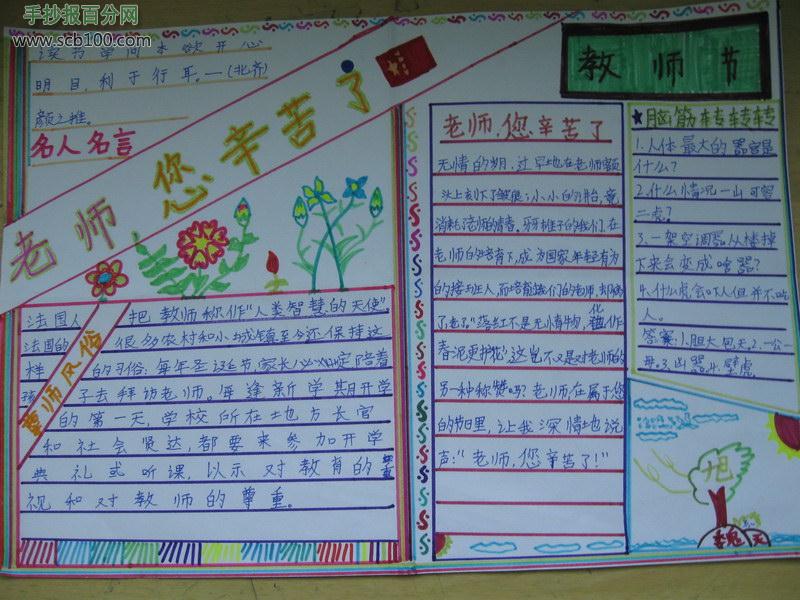 手抄报百分网
www.scb100.com
读书
欲开心
明目，利于行耳。—(北齐)
颜之推。
名人名言
老师，您辛苦了
教师节
法国人 把教师称作“人类智慧的天使”。
法国的 很多农村和小城镇至今还保持这
样 的习俗：每年圣诞节，家长 定陪着
孩 子去拜访老师。每逢新学期开学
的第一天，学校所在地方长官
和社会贤达，都要来参加开学
典礼或听课，以示对教育的重
视和对教师的尊重。
尊师风俗
老师，您辛苦了
无情的岁月，过早地在老师额
头上刻下了皱
消耗 老师的青春。牙牙 的我们，在
老师的培育下，成为国家年轻有为
的接班人，而培育我们的老师，却
了老了。“落红不是无情物，化作
春泥更护花”这岂不又是对老师的
另一种称赞吗？老师，在属于您
的节日里，让我深情地说
声：“老师，您辛苦了！”
脑筋转转转
1.人体最大的器官是
什么？
2.什么情况一山可容
二虎？
3.一架空调器从楼掉
下来会变成啥器？
4.什么虎会吓人但并不吃
人。
答案：1.胆大包天2.一公一
母。3.凶器4.壁虎
旭
魏